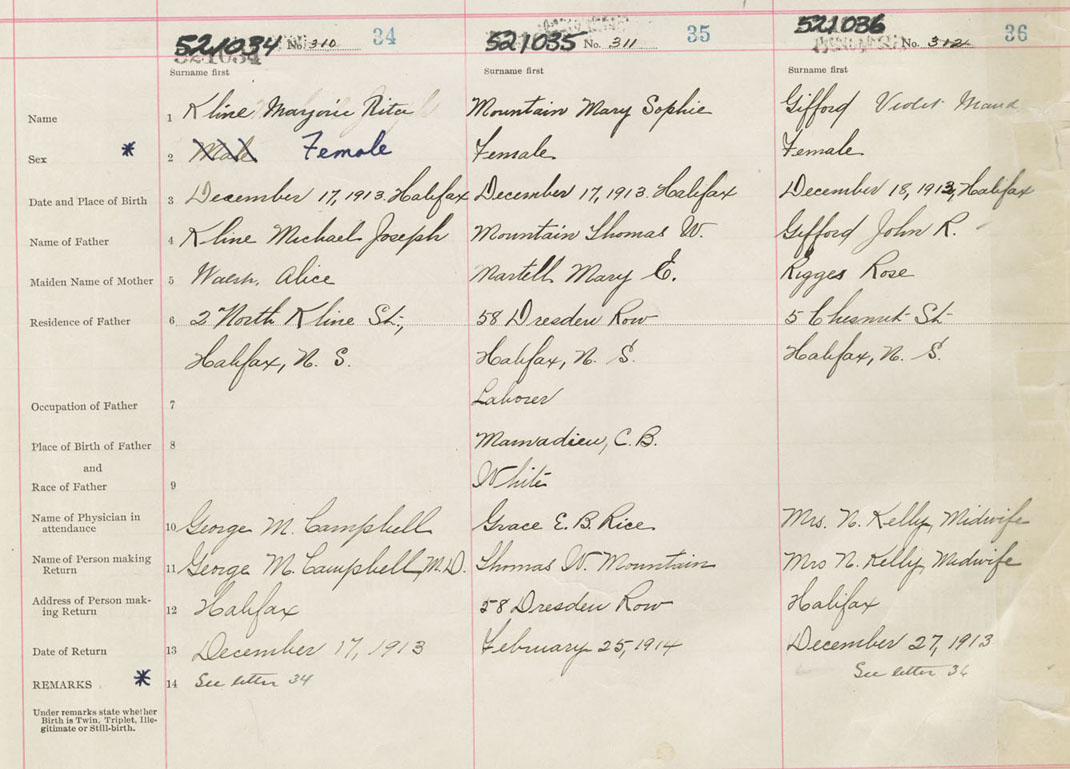 521034 No. 310 34
521035 No. 311 35
521036 No. 312 36
521034
Surname first Surname first Surname first
Name 1 Kline Marjorie Rita Mountain Mary Sophie Gifford Violet Maud
Sex * 2 Male Female Female Female
Date and Place of Birth 3 December 17, 1913. Halifax December 17, 1913. Halifax December 18, 1913, Halifax
Name of Father 4 Kline Michael Joseph Mountain Thomas W. Gifford John R.
Maiden Name of Mother 5 Walsh, Alice Martell Mary E. Rigges Rose
Residence of Father 6 2 North Kline St., 58 Dresden Row 5 Chesnut St
Halifax, N. S. Halifax, N. S. Halifax, N. S.
Occupation of Father 7 Laborer
Place of Birth of Father 8 Mainadieu, C.B.
and
Race of Father 9 White
Name of Physician in
attendance 10 George M. Campbell Grace E. B. Rice Mrs. N. Kelly, Midwife
Name of Person making
Return 11 George M. Campbell, M.D. Thomas W. Mountain Mrs N. Kelly, Midwife
Address of Person mak-
ing Return 12 Halifax 58 Dresden Row Halifax
Date of Return 13 December 17, 1913 February 25, 1914 December 27, 1913
REMARKS * 14 See letter 34 See letter 36
Under remarks state whether
Birth is Twin, Triplet, Ille-
gitimate or Still-birth.